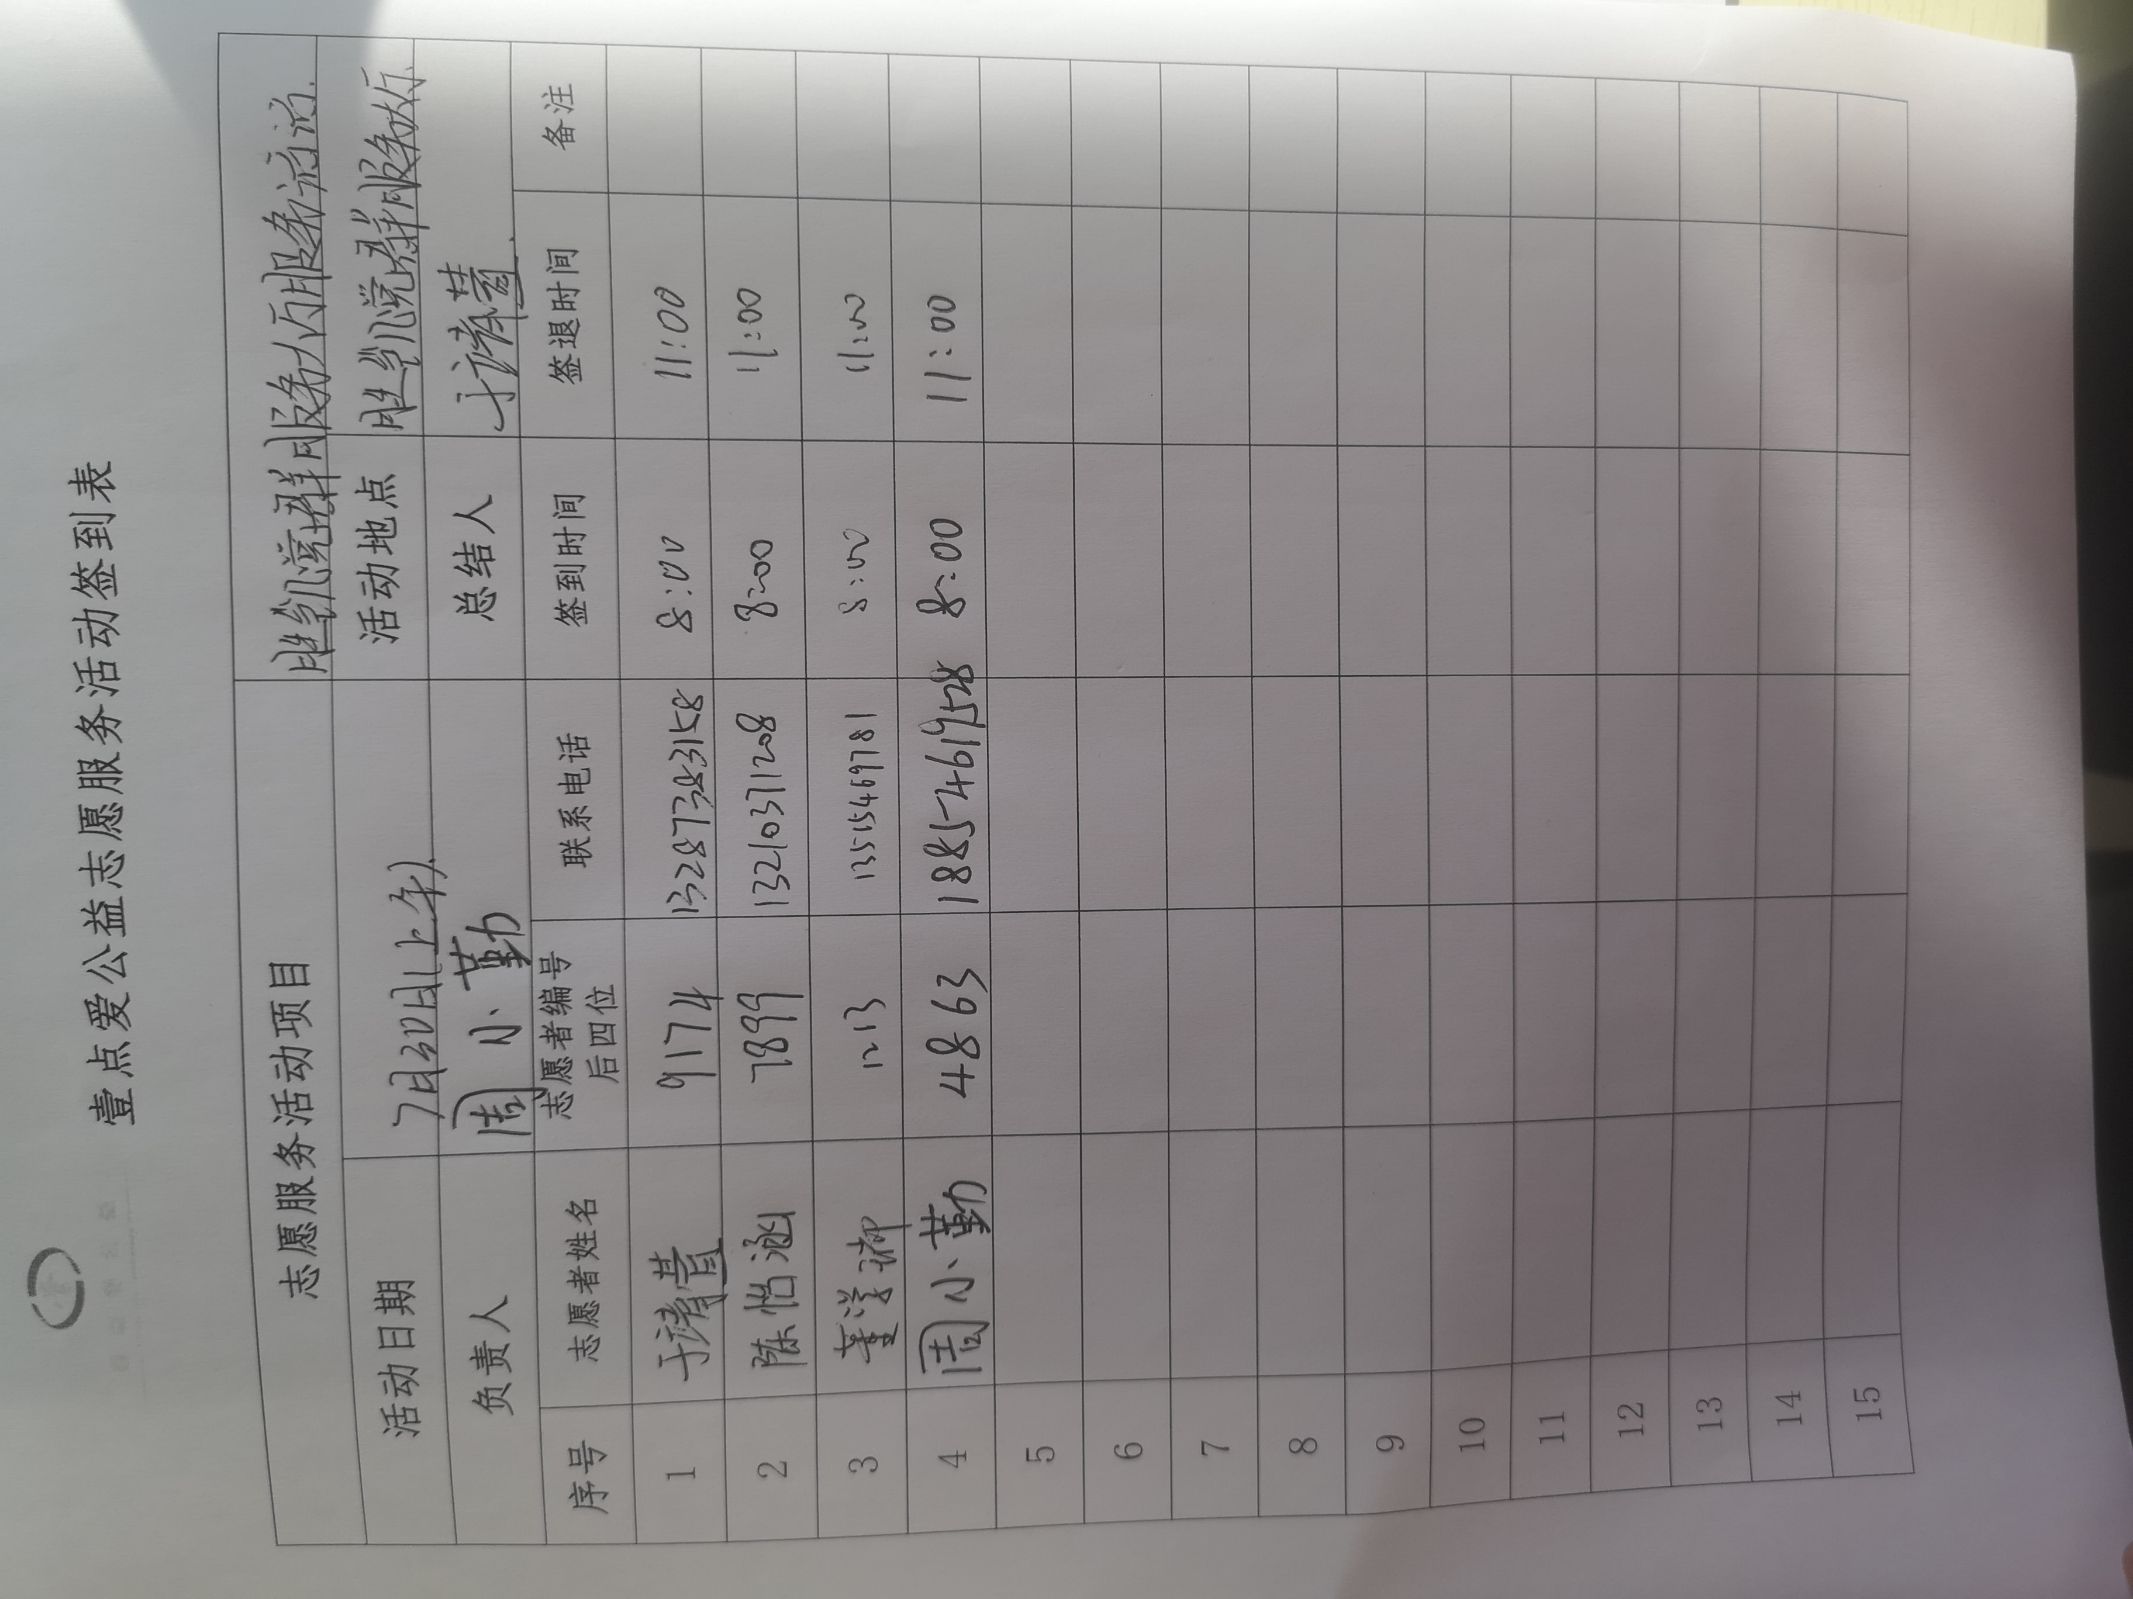 壹点爱公益志愿服务活动签到表
志愿服务活动项目 胜利院党群服务大厅服务活动.
活动日期 7月30日(上午) 活动地点 胜利院党群服务大厅.
负责人 周小勤 总结人
序号 志愿者姓名 志愿者编号后四位 联系电话 签到时间 签退时间 备注
1 9174 13287383158 8:00 11:00
2 陈怡涵 7899 13210371208 8:00 11:00
3 1213 13515469781 8:00 11:00
4 周小勤 4863 18854619528 8:00 11:00
5
6
7
8
9
10
11
12
13
14
15